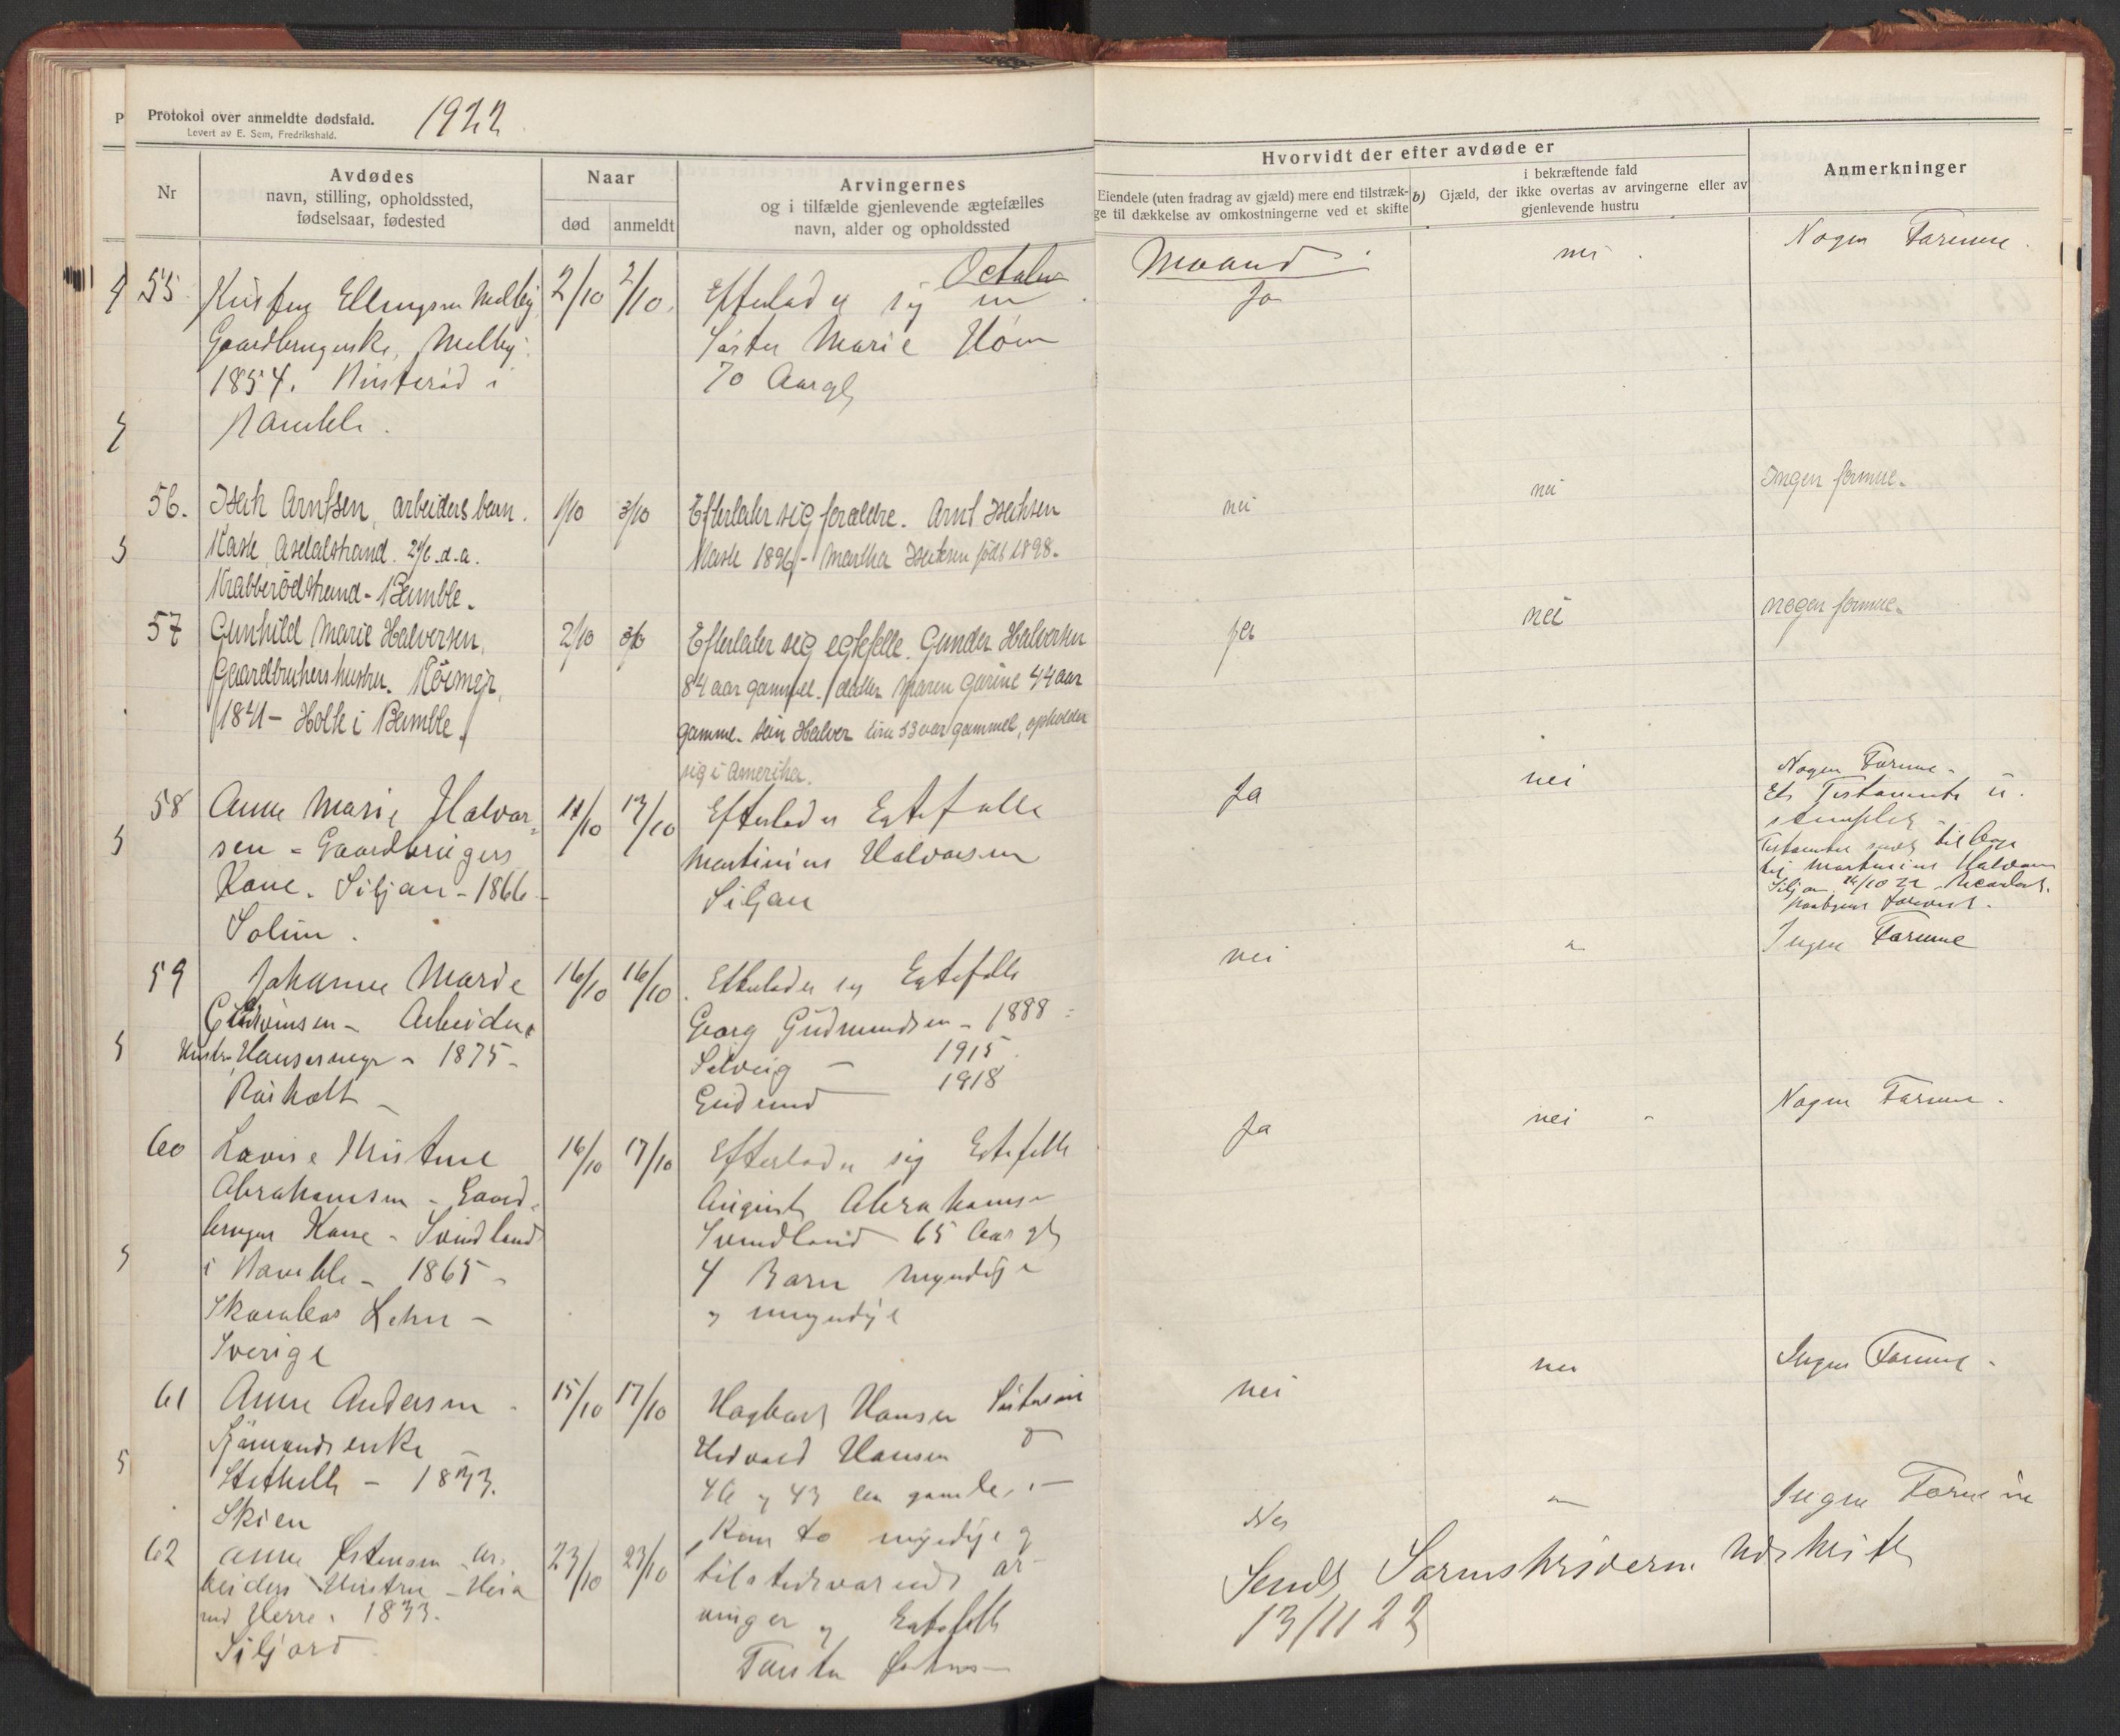 Protokol over anmeldte dødsfald.
Levert av E. Sem, Fredrikshald.
1922
Nr
Avdødes
navn, stilling, opholdssted,
fødselsaar, fødested
Naar
død
anmeldt
Arvingernes
og i tilfælde gjenlevende ægtefælles
navn, alder og opholdssted
Hvorvidt der efter avdøde er
Eiendele (uten fradrag av gjæld) mere end tilstræk-
ge til dækkelse av omkostningerne ved et skifte
b)
i bekræftende fald
Gjæld, der ikke overtas av arvingerne eller av
gjenlevende hustru
Anmerkninger
October Maand
55
Ellingsen Melby
Gaardbrugerske, Melby
1854. i
Bamble.
2/10
2/10.
Efterlader sig en
Søster Marie
70 Aar gl
Ja
nei
Nogen Formue.
56.
Isak Arntsen, arbeiders barn.
Aasdalstrand. d.a.
Krabberødstrand - Bamble.
1/10
3/10
Efterlater sig forældre. Arnt Isaksen
1896 - Martha Isaksen født 1898.
nei
nei
Ingen formue.
57
Gunhild Marie Halvorsen,
Gaardbrukers hustru.
1841 - Holte i Bamble.
2/10
3/10
Efterlater sig egtefelle. Gunder Halvorsen
84 aar gammel. datter Maren Gurine 44 aar
gamme. søn Halvor 53 aar gammel, opholder
sig i Amerika.
ja
nei
nogen formue.
58
Anne Marie Halvor=
sen - Gaardbrugers
Kone. Siljan - 1866 -
Solum.
11/10
13/10
Efterlader Egtefælle
Martinius Halvorsen
Siljan
Ja
nei
Nogen Formue -
Et Testamente
Testamentet sendt
til Martinius Halvorsen
Siljan 24/10 22
59
Johanne Marie
Arbeider
Hustru - 1875 -
16/10
16/10
Efterlader sig Egtefælle
Georg Gudmundsen - 1888
Solveig - 1915
Gudrund 1918
nei
"
Ingen Formue
60
Lovise Kristine
Abrahamsen - Gaard=
bruger Kone - Svindland
i Bamble - 1865 -
Skaraborg Lehn -
Sverige
16/10
17/10
Efterlader sig Egtefelle
August Abrahamsen
Svindland 65 Aar gl
4 Barn myndige
og umyndige
Ja
nei
Nogen Formue.
61
Anne Andersen
Sjømands enke -
Stathelle - 1833.
Skien
15/10
17/10
Hagbart Hansen Søstersøn
Hansen
46 og 43 Aar gamle. -
nei
nei
Ingen Formue -
62
Anne Østensen Ar-
beiders Hustru -
ved Herre. 1833.
Siljord
23/10
23/10
Kun to myndige og
tilstedeværende ar-
vinger og Egtefelle
Nei
Ingen Formue
Sendt Sorenskriveren Udskrift
13/11 22